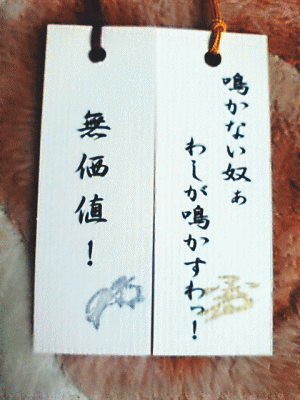 鳴かない奴ぁ
わしが鳴かすわっ！
無価値！